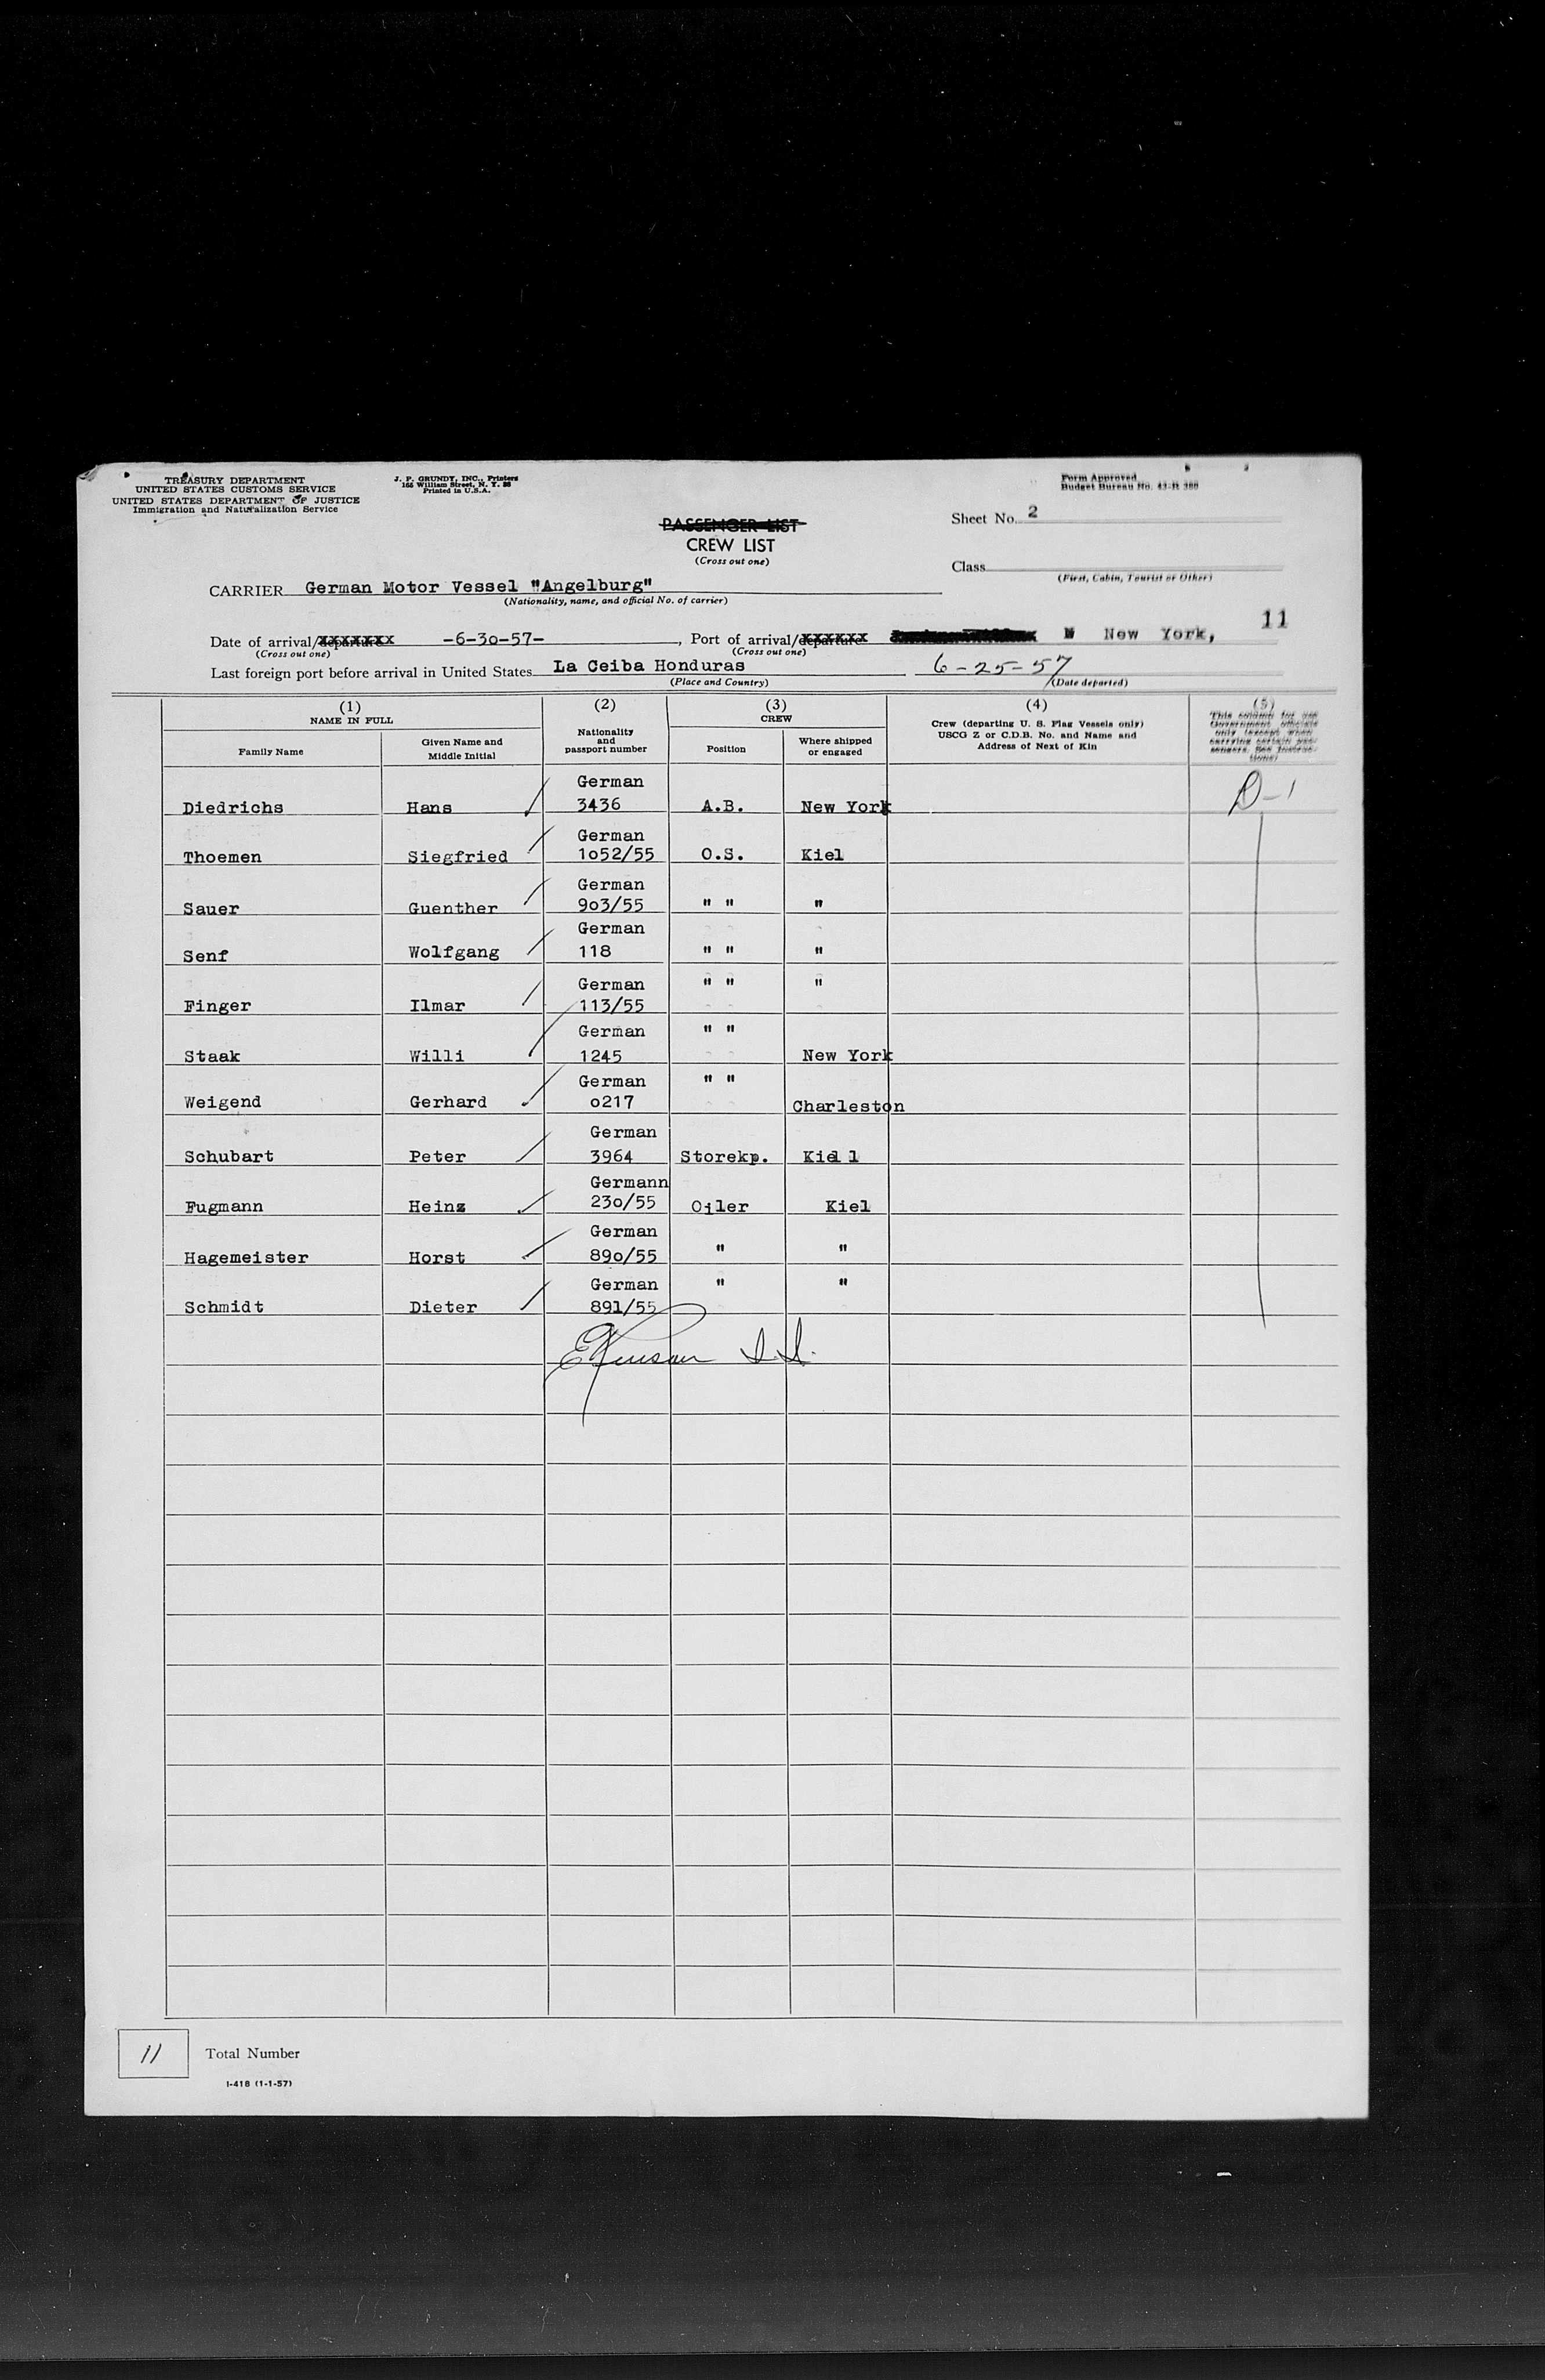 TREASURY DEPARTMENT
UNITED STATES CUSTOMS SERVICE
UNITED STATES DEPARTMENT OF JUSTICE
Immigration and Naturalization Service
J. P. GRUNDY, INC., Printers
166 William Street, N. Y. 38
Printed in U.S.A.
Form Approved
Budget Bureau No. 43-R 388
PASSENGER LIST
CREW LIST
(Cross out one)
Sheet No. 2
Class
(First, Cabin, Tourist or Other)
CARRIER German Motor Vessel "Angelburg"
(Nationality, name, and official No. of carrier)
11
Date of arrival/departure -6-30-57-, Port of arrival/departure New York,
(Cross out one) (Cross out one)
Last foreign port before arrival in United States La Ceiba Honduras 6-25-57
(Place and Country) (Date departed)
(1) (2) (3) (4) (5)
NAME IN FULL
Family Name
Given Name and Middle Initial
Nationality and passport number
CREW
Position
Where shipped or engaged
Crew (departing U. S. Flag Vessels only)
USCG Z or C.D.B. No. and Name and
Address of Next of Kin
This column for use
Government officials
only (except when
carrying certain pas-
sengers. See Instruc-
tions)
German D-1
Diedrichs Hans 3436 A.B. New York
German
Thoemen Siegfried 1052/55 O.S. Kiel
German
Sauer Guenther 903/55 " " "
German
Senf Wolfgang 118 " " "
German " " "
Finger Ilmar 113/55
German " "
Staak Willi 1245 New York
German " "
Weigend Gerhard 0217 Charleston
German
Schubart Peter 3964 Storekp. Kiel
Germann
Fugmann Heinz 230/55 Oiler Kiel
German
Hagemeister Horst 890/55 " "
German " "
Schmidt Dieter 891/55
11 Total Number
I-418 (1-1-57)